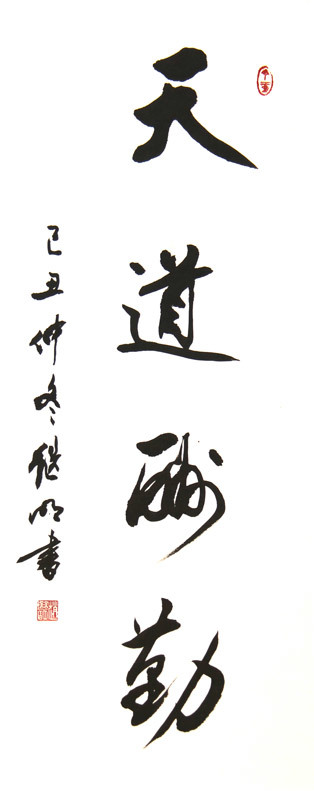 天道酬勤
己丑仲冬继明書